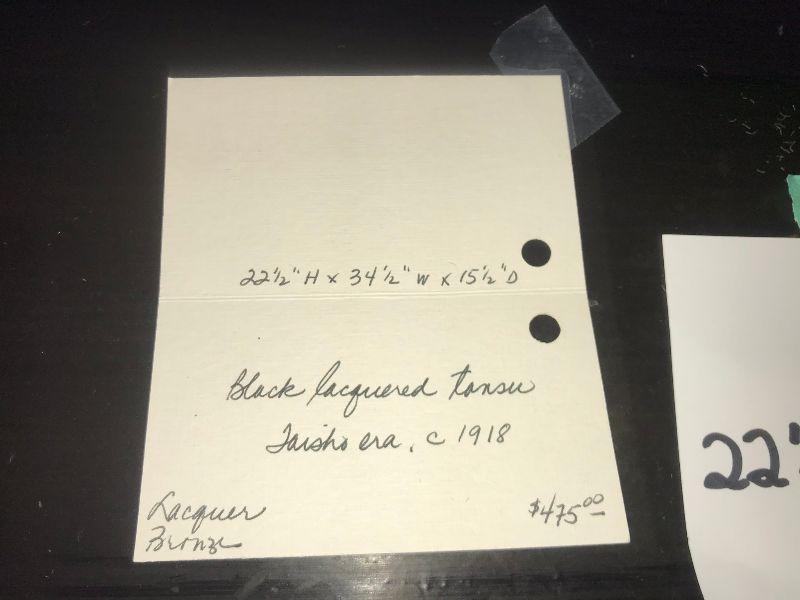 22 1/2" H x 34 1/2" W x 15 1/2" D
Black lacquered tansu
Taisho era, c 1918
Lacquer
Bronze
$475.00
22"